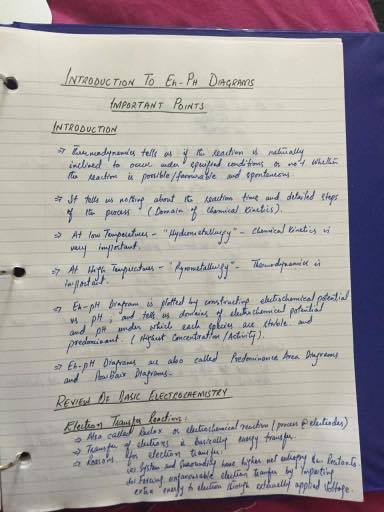 INTRODUCTION TO Eh-PH DIAGRAMS
IMPORTANT POINTS
INTRODUCTION
⇒ Thermodynamics tells us if the reaction is naturally
inclined to occur under specified conditions or not whether
the reaction is possible/favourable and spontaneous.
⇒ It tells us nothing about the reaction time and detailed steps
of the process (Domain of Chemical Kinetics).
⇒ At low Temperatures - "Hydrometallurgy" - Chemical Kinetics is
very important.
⇒ At High Temperatures - "Pyrometallurgy" - Thermodynamics is
important.
⇒ Eh-pH Diagram is plotted by constructing electrochemical potential
vs pH, and tells us domains of electrochemical potential
and pH under which each species are stable and
predominant. (Highest Concentration/Activity).
⇒ Eh-pH Diagrams are also called Predominance Area Diagrams
and Pourbaix Diagrams.
REVIEW OF BASIC ELECTROCHEMISTRY
Electron Transfer Reaction:
⇒ Also called Redox or electrochemical reaction (process @ electrodes)
⇒ Transfer of electrons is basically energy transfer.
⇒ Reasons for electron transfer:
System and Surrounding have higher net entropy than Reactants
Forcing unfavourable electron transfer by imparting
extra energy to electron through externally applied voltage.